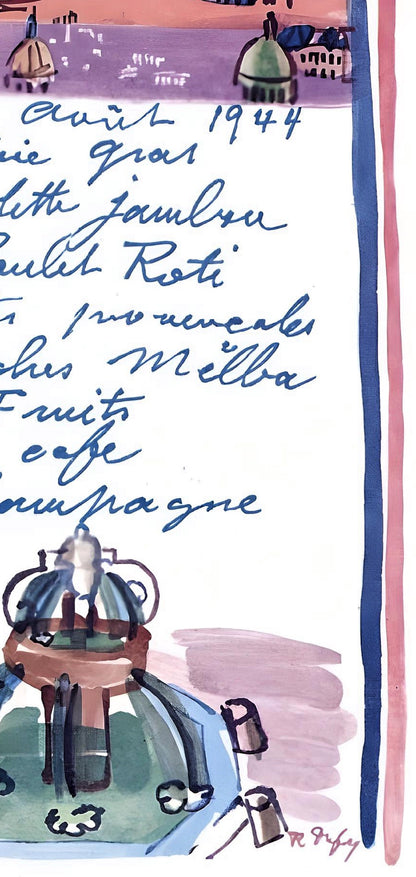 Août 1944
ie gras
lette jambon
oulet Roti
ts provencales
ches Melba
Fruits
cafe
ampagne
R Dufy